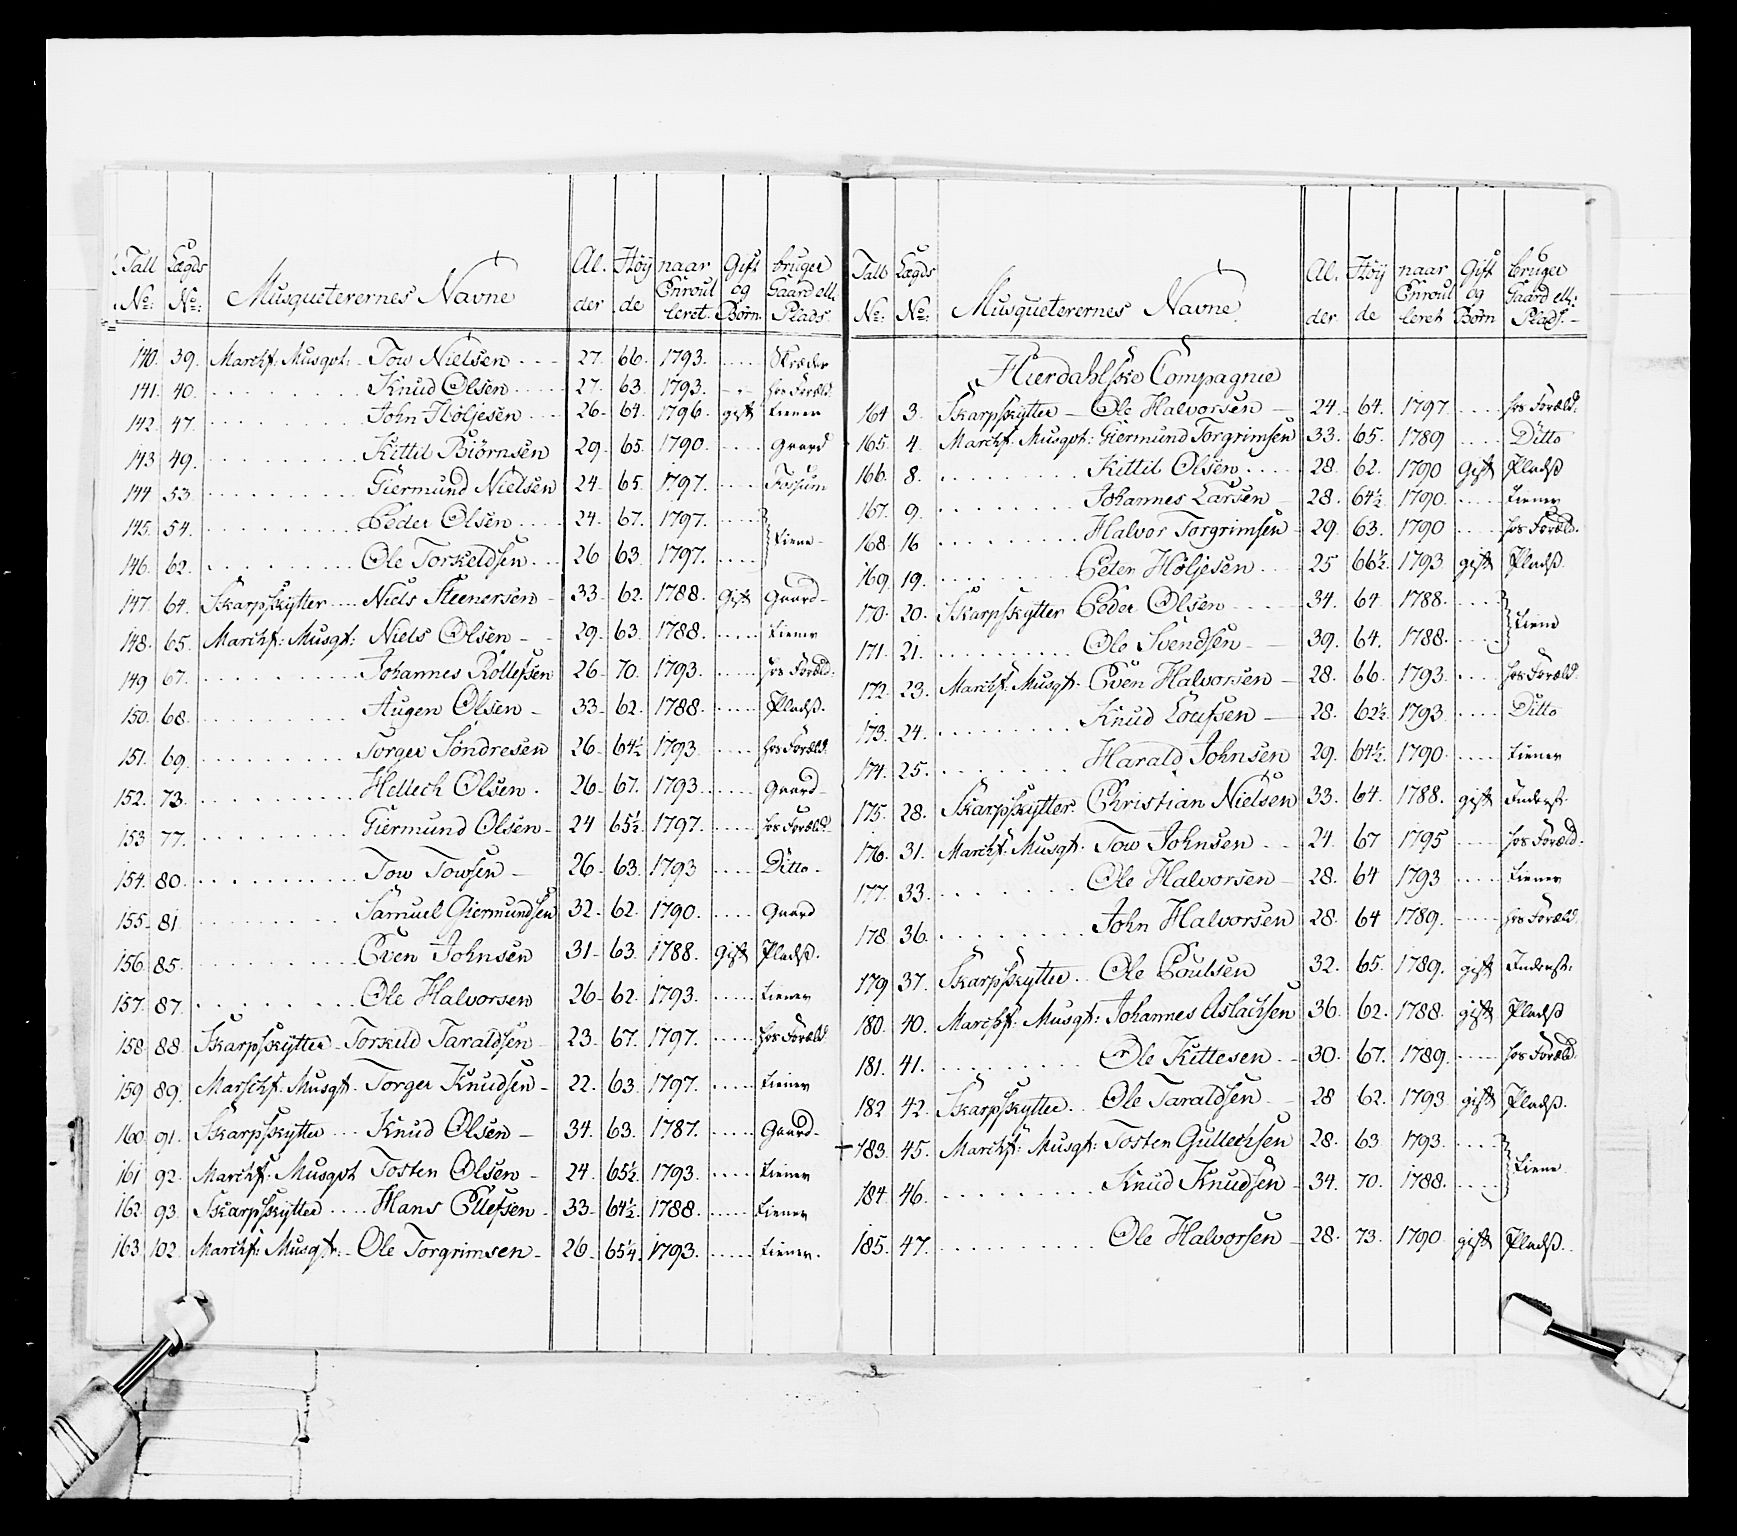 Tall Lægds Musqueterernes Navne Al. Høy naar Gift bruger
No: No: der de Enroul og Gaard ell:
leret. Børn. Plads
140. 39. Marchf: Musqvt: Tow Nielsen 27. 66. 1793. Skræder
141. 40. Knud Olsen 27. 63. 1793. hos Foræld.
142. 47. John Høljesen 26. 64. 1796. gift tiener
143 49. Kittil Biørnsen 29. 65. 1790. Gaard
144 53. Giermund Nielsen 24. 65. 1797. Fossum
145. 54. Peder Olsen 24. 67. 1797.
tiene
146. 62. Ole Torkeldsen 26 63. 1797.
147. 64. Skarpskytter Niels Steenersen 33. 62. 1788. Gift Gaard
148. 65. Marchf: Musqt: Niels Olsen 29. 63. 1788. tiener
149 67. Johannes Rollefsen 26. 70. 1793. hos Foræld.
150. 68. Augen Olsen 33. 62. 1788. Pladß.
151. 69. Torger Søndresen 26. 64½ 1793. hos Foræld.
152. 73. Hellech Olsen. 26. 67. 1793. Gaard
153 77. Giermund Olsen 24 65½. 1797. hos Foræld.
154. 80. Tow Towsen 26. 63. 1793 Ditto.
155. 81 Samuel Giermundsen 32. 62. 1790. Gaard
156. 85. Even Johnsen 31. 63. 1788. Gift Pladß.
157. 87. Ole Halvorsen 26. 62. 1793. tiener
158 88. Skarpskytter Torkild Taraldsen 23. 67. 1797. hos Foræld.
159 89. Marschf: Musqt. Torger Knudsen 22. 63. 1797. tiener
160. 91. Skarpskytter Knud Olsen 34. 63. 1787. Gaard
161 92. Marchf: Musqvt Tosten Olsen 24. 65½. 1793. tiener
162. 93. Skarpskytter Hans Ellefsen 33. 64½. 1788. tiener
163 102. Marchf: Musqt: Ole Torgrimsen 26. 65¼. 1793. tiener.
Tall Lægds Musqueterernes Navne. Al. Høy naar Gift bruger
No: No: der de Enroul og Gaard ell:
leret Børn Plads.
Hierdahlske Compagnie
164 3. Skarpskytter Ole Halvorsen 24. 64. 1797 hos Foræld.
165. 4. Marchf: Musqvt: Giermund Torgrimsen 33. 65. 1789 Ditto
166. 8. Kittil Olsen 28. 62. 1790 Gift Pladß
167. 9. Johannes Larsen 28. 64½ 1790. tiener
168. 16 Halvor Torgrimsen 29. 63. 1790 hos Foræld.
169 19. Peter Høljesen 25 66½. 1793 gift Pladß.
170. 20. Skarpskytter Peder Olsen 34. 64 1788.
tiene
171. 21. Ole Svendsen 39. 64. 1788.
172. 23. Marchf: Musqt. Even Halvorsen 28. 66. 1793. hos Foræld.
173. 24. Knud Loufsen 28. 62½ 1793. Ditto
174. 25. Harald Johnsen 29. 64½. 1790. tiener
175. 28. Skarpskytter. Christian Nielsen 33. 64. 1788. gift Inderst.
176. 31. Marchf: Musqt. Tow Johnsen 24. 67 1795 hos Foræld.
177. 33. Ole Halvorsen 28. 64 1793 tiener
178 36. John Halvorsen 28. 64 1789. hos Foræld.
179 37. Skarpskytter Ole Poulsen 32. 65. 1789. gift Inderst:
180. 40. Marchf: Musqt: Johannes Aslachsen 36. 62. 1788. gift Pladß
181. 41. Ole Kittesen 30. 67. 1789. hos Foræld.
182 42. Skarpskytter Ole Taraldsen 28 62. 1793 gift Pladß.
+ 183. 45. Marchf: Musqt: Tosten Gullechsen 28. 63 1793.
tiene
184. 46. Knud Knudsen 34. 70. 1788.
185. 47. Ole Halvorsen 28. 73. 1790. gift Pladß.